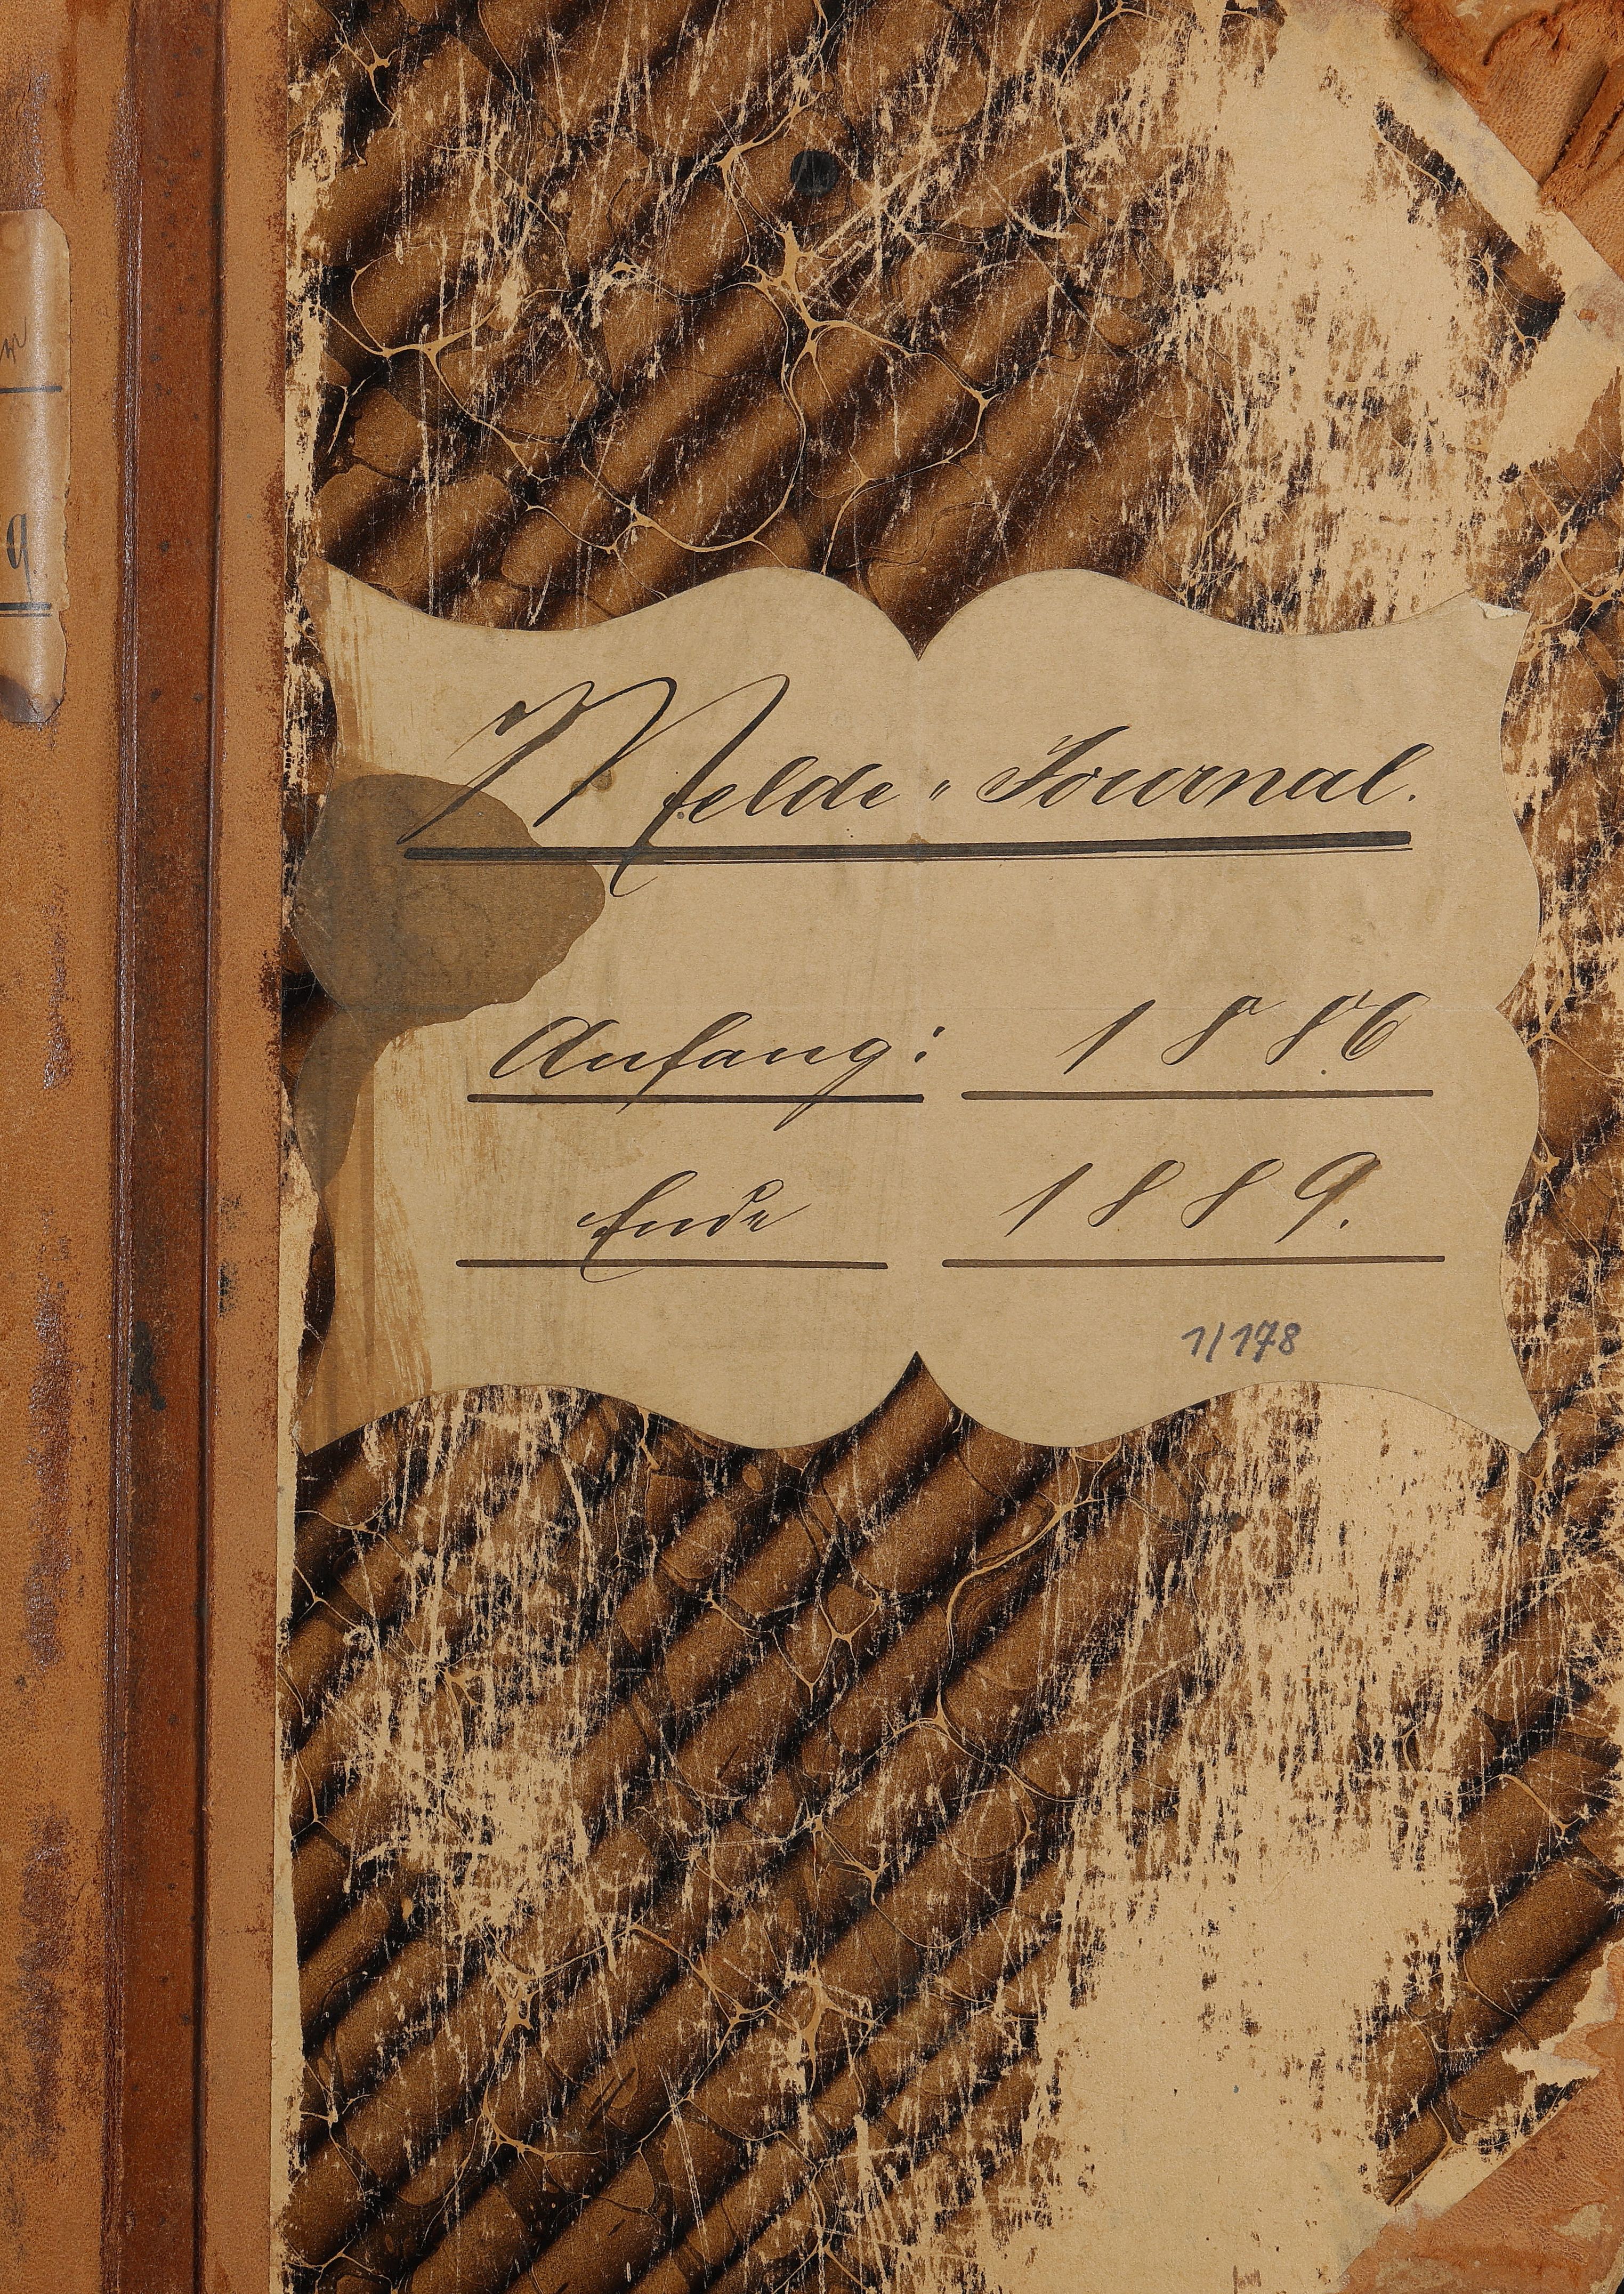 Melde-Journal.
Anfang: 1886
Ende 1889.
1/178